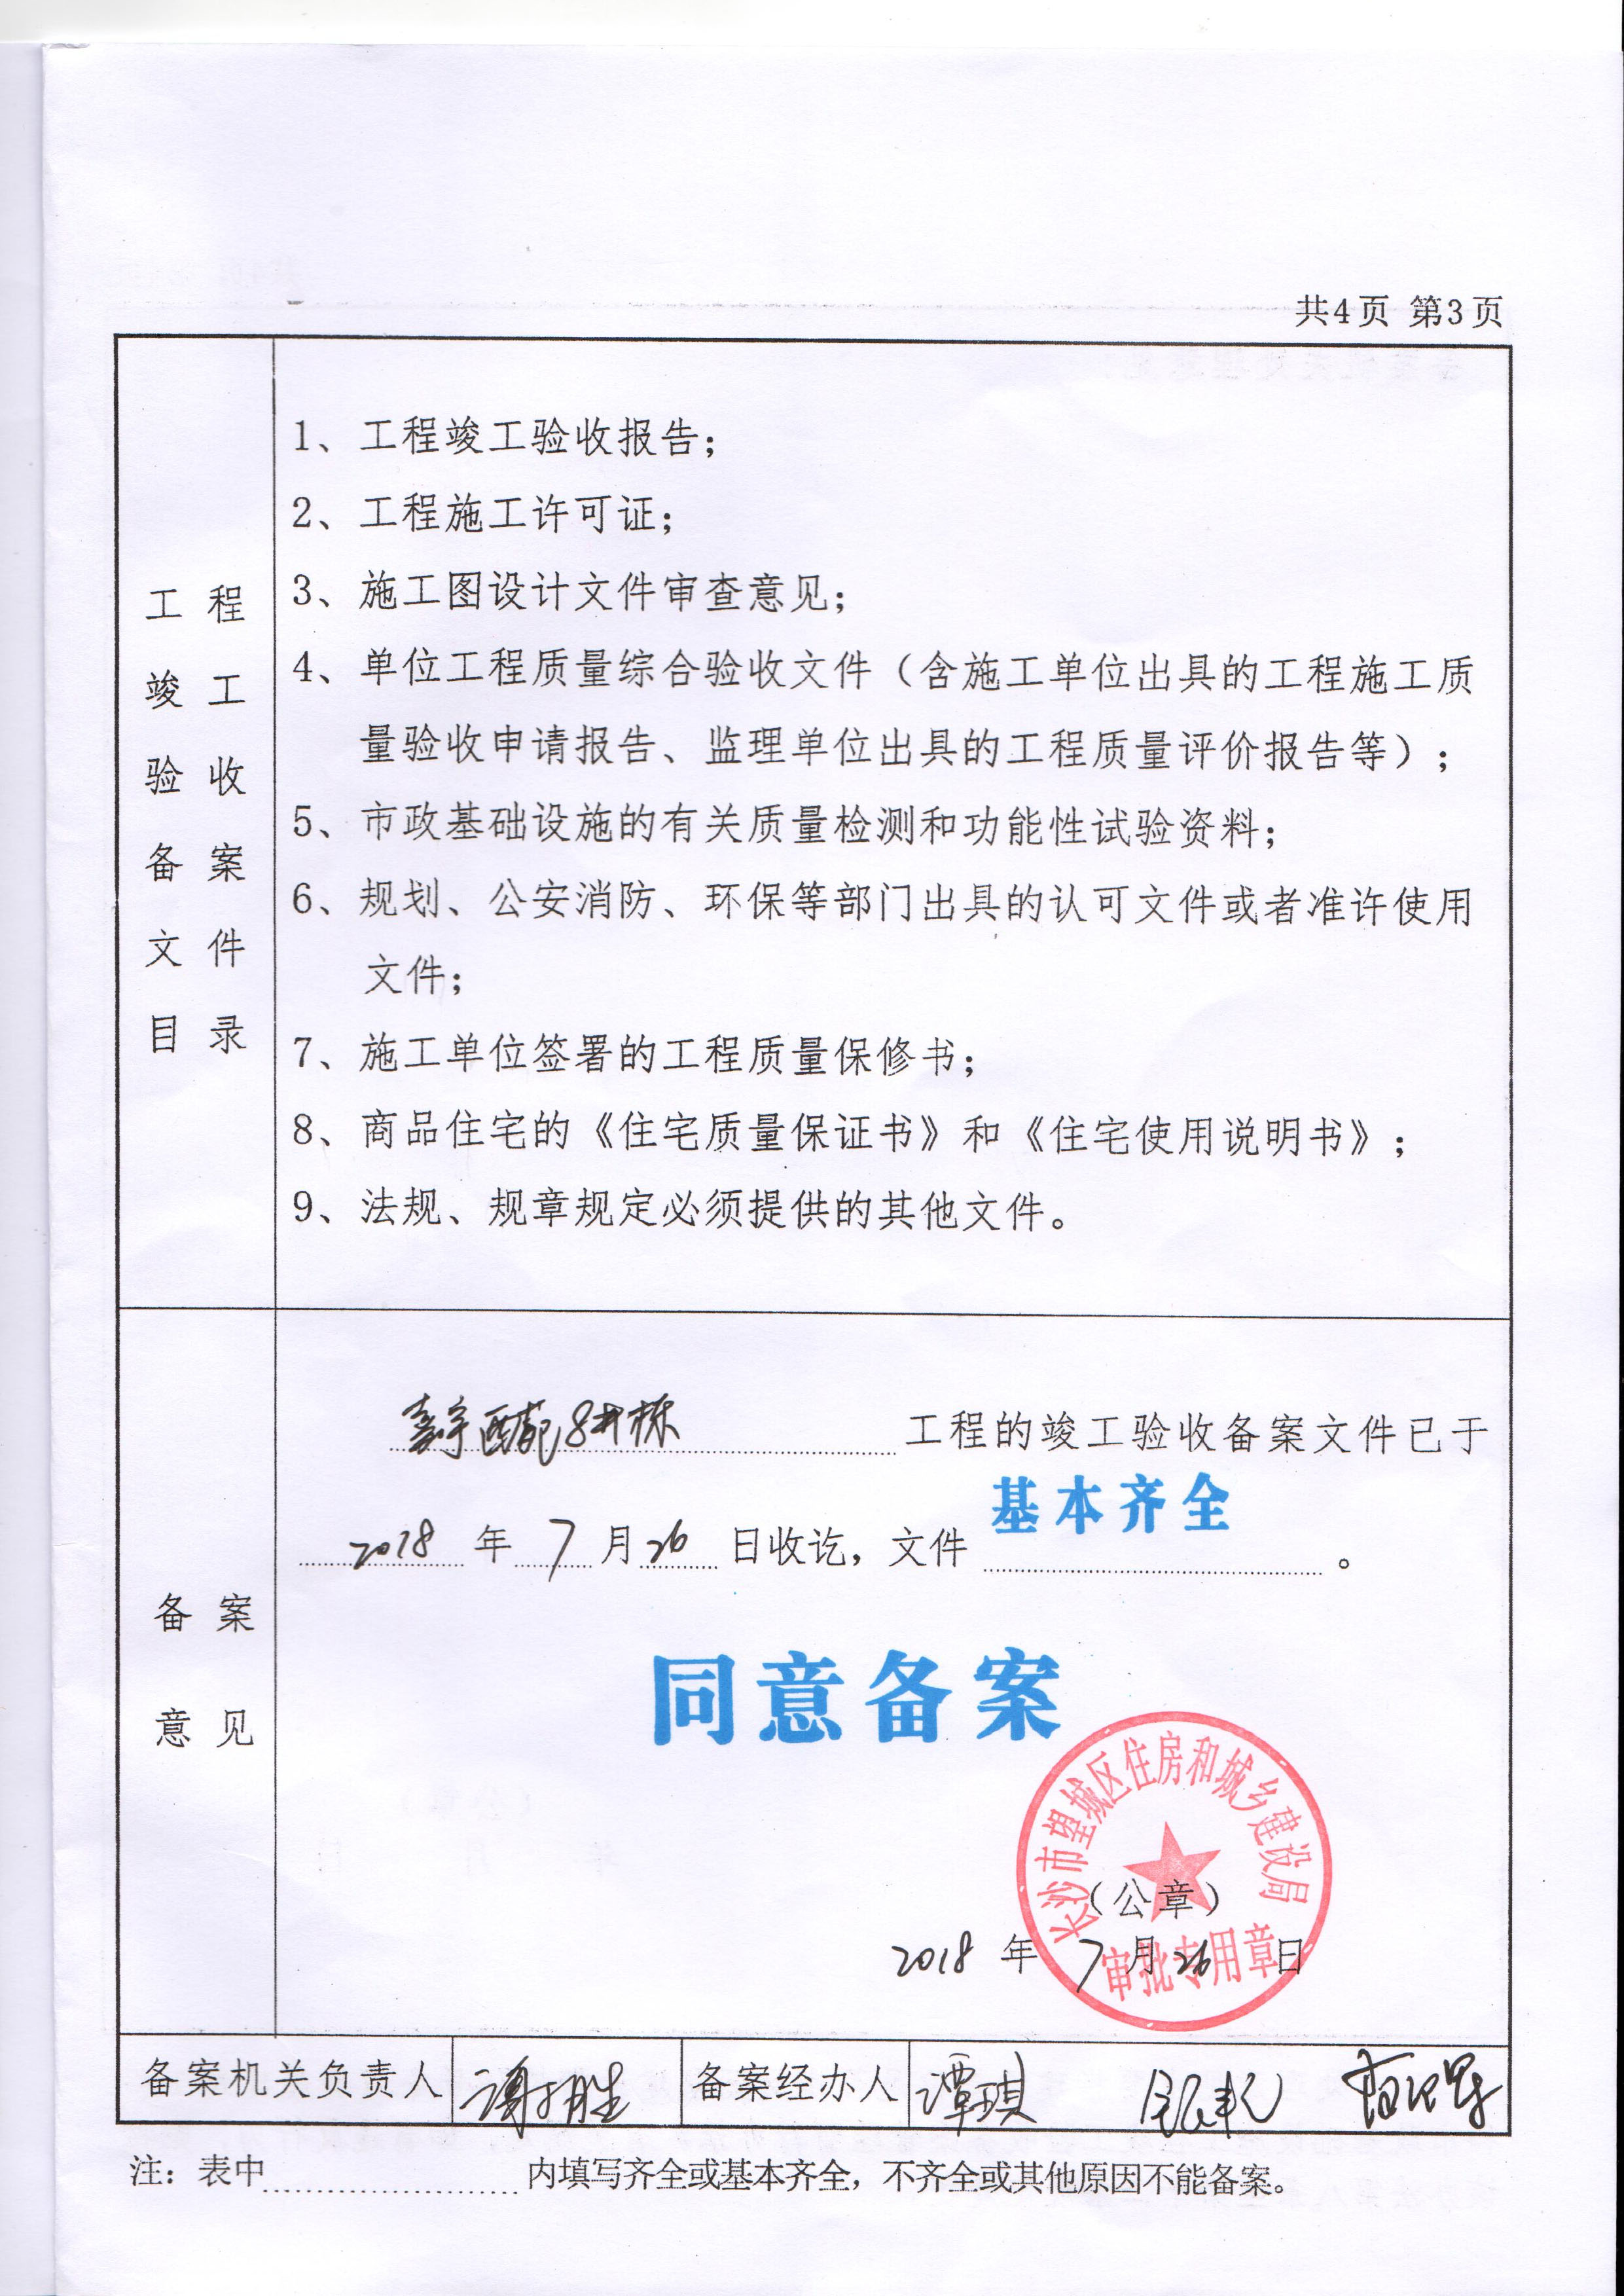 共4页 第3页
工程
竣工
验收
备案
文件
目录
1、工程竣工验收报告；
2、工程施工许可证；
3、施工图设计文件审查意见；
4、单位工程质量综合验收文件（含施工单位出具的工程施工质
量验收申请报告、监理单位出具的工程质量评价报告等）；
5、市政基础设施的有关质量检测和功能性试验资料；
6、规划、公安消防、环保等部门出具的认可文件或者准许使用
文件；
7、施工单位签署的工程质量保修书；
8、商品住宅的《住宅质量保证书》和《住宅使用说明书》；
9、法规、规章规定必须提供的其他文件。
备案
意见
8#栋 工程的竣工验收备案文件已于
基本齐全
2018 年 7 月 26 日收讫，文件 。
同意备案
长沙市望城区住房和城乡建设局
（公章）
2018 年 7 月 26 日
审批专用章
备案机关负责人 备案经办人 谭琪
注：表中 内填写齐全或基本齐全，不齐全或其他原因不能备案。